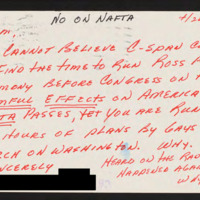 NO ON NAFTA
CANNOT BELIEVE C-SPAN C
FIND THE TIME TO RUN ROSS P
MONY BEFORE CONGRESS ON
MFUL EFFECTS ON AMERICA
TA PASSES, YET YOU ARE RUN
HOURS OF PLANS BY GAYS
CH ON WASHINGTON. WHY.
NCERELY
HEARD ON THE RA
HAPPENCE AGA